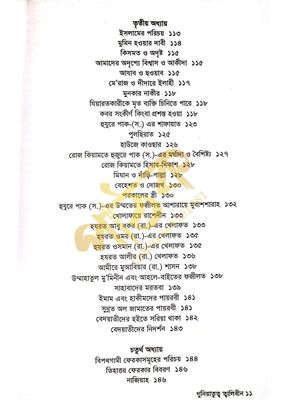 তৃতীয় অধ্যায়
ইসলামের পরিচয় ১১৩
মুমিন হওয়ার দাবী ১১৪
কিসমত ও অদৃষ্ট ১১৫
আমাদের অদৃশ্যে বিশ্বাস ও আকীদা ১১৫
আযাব ও ছওয়াব ১১৫
মে'রাজ ও দীদারে ইলাহী ১১৭
মুনকার নাকীর ১১৮
যিয়ারতকারীকে মৃত ব্যক্তি চিনিতে পারে ১১৮
কবর সংকীর্ণ কিংবা প্রশস্ত হওয়া ১১৮
হুযুরে পাক-(স.) -এর শাফায়াত ১২৩
পুলছিরাত ১২৫
হাউজে কাওছার ১২৬
রোজ কিয়ামতে হুজুরে পাক (স.)-এর মর্যাদা ও বৈশিষ্ট্য ১২৭
রোজ কিয়ামতে হিসাব-নিকাশ ১২৮
মিযান ও দাঁড়ি-পাল্লা ১২৮
বেহেশত ও দোজখ ১৩০
পরকালের স্ত্রী ১৩০
হুযুরে পাক (স.)-এর উম্মতের ফজীলত আশারায়ে মুবাশশারাহ ১৩২
খোলাফায়ে রাশেদীন ১৩৩
হযরত আবু বকর (রা.)-এর খেলাফত ১৩৩
হযরত ওমর (রা.)-এর খেলাফত ১৩৫
হযরত ওসমান (রা.)-এর খেলাফত ১৩৫
হযরত আলীর (রা.) খেলাফত ১৩৫
আমীরে মুআবিয়ার (রা.) শাসন ১৩৮
উম্মাহাতুল মু'মিনীন এবং আহলে-বাইতের ফজীলত ১৩৮
সাহাবাদের মরতবা ১৩৯
ইমাম এবং হাকীমদের পায়রবী ১৪১
সুন্নত অল জামাতের পায়রবী ১৪১
বেদয়াতীদের হইতে সরিয়া থাকা ১৪২
বেদয়াতীদের নিদর্শন ১৪৩
চতুর্থ অধ্যায়
বিপথগামী ফেরকাসমূহের পরিচয় ১৪৪
তিহাত্তর ফেরকার বিবরণ ১৪৬
নাজিয়াহ ১৪৬
গুনিয়াতুত্ব ত্বালিবীন ১১